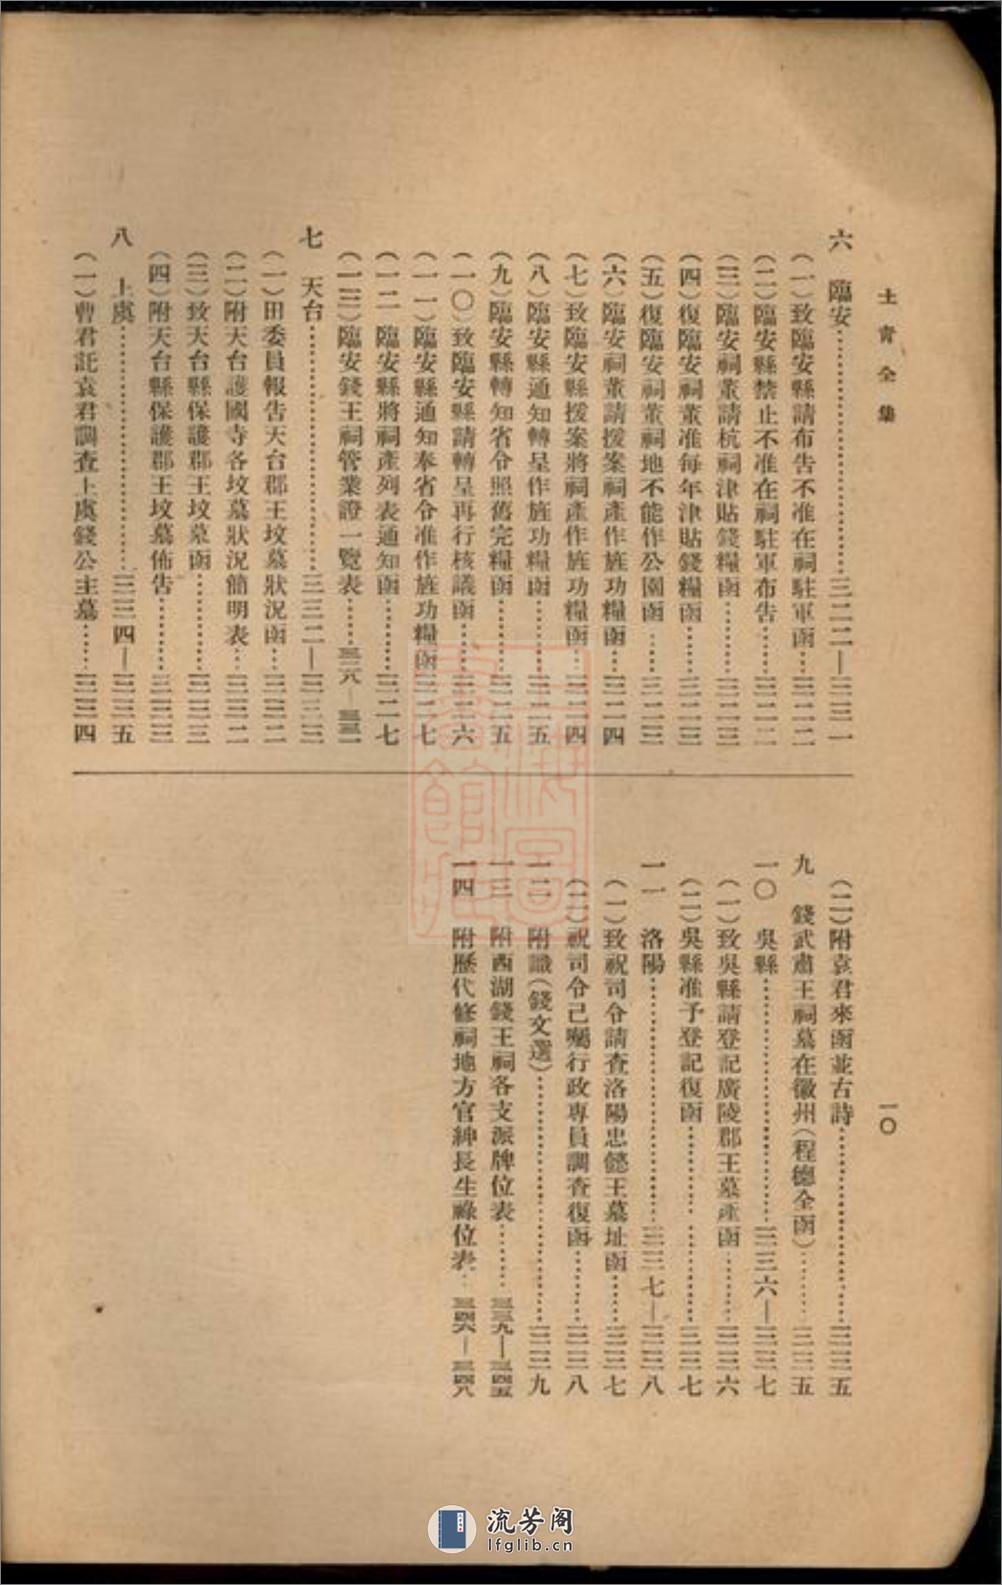 士青全集
一〇
六　臨安…………三二二—三三一
（一）致臨安縣請布告不准在祠駐軍函…三二二
（二）臨安縣禁止不准在祠駐軍布告…三二二
（三）臨安祠董請杭祠津貼錢糧函…三二三
（四）復臨安祠董准每年津貼錢糧函…三二三
（五）復臨安祠董祠地不能作公園函…三二三
（六）臨安祠董請援案祠產作旌功糧函…三二四
（七）致臨安縣援案將祠產作旌功糧函…三二四
（八）臨安縣通知轉呈作旌功糧函…三二五
（九）臨安縣轉知省令照舊完糧函…三二五
（一〇）致臨安縣請轉呈再行核議函…三二六
（一一）臨安縣通知奉省令准作旌功糧函三二七
（一二）臨安縣將祠產列表通知函…三二七
（一三）臨安錢王祠管業證一覽表…三二八—三三一
七　天台…………三三二—三三三
（一）田委員報告天台郡王坟墓狀況函…三三二
（二）附天台護國寺各坟墓狀況簡明表…三三二
（三）致天台縣保護郡王坟墓函…三三三
（四）附天台縣保護郡王坟墓佈告…三三三
八　上虞…………三三四—三三五
（一）曹君託袁君調查上虞錢公主墓…三三四
（二）附袁君來函並古詩…三三五
九　錢武肅王祠墓在徽州（程德全函）…三三五
一〇　吳縣…………三三六—三三七
（一）致吳縣請登記廣陵郡王墓產函…三三六
（二）吳縣准予登記復函…三三七
一一　洛陽…………三三七—三三八
（一）致祝司令請查洛陽忠懿王墓址函…三三七
（二）祝司令已囑行政專員調查復函…三三八
一二　附識（錢文選）…三三九
一三　附西湖錢王祠各支派牌位表…三三九—三四五
一四　附歷代修祠地方官紳長生祿位表…三四六—三四八
流芳阁
lfglib.cn